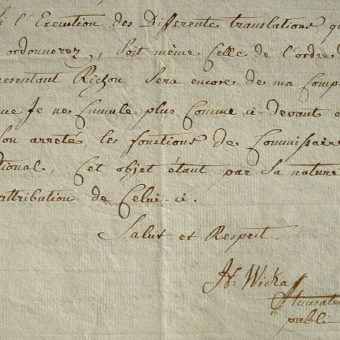 à l'Execution des Differente translations qu
ordonnerez, soit même Celle de l'ordre d
resentant Richou Sera encore de ma Comp
que Je ne Cumule plus Comme ci-devant e
son arreté, les fonctions de Commissaire
tional, Cet objet étant par Sa nature
attribution de Celui-ci.
Salut et Respect.
Wicka